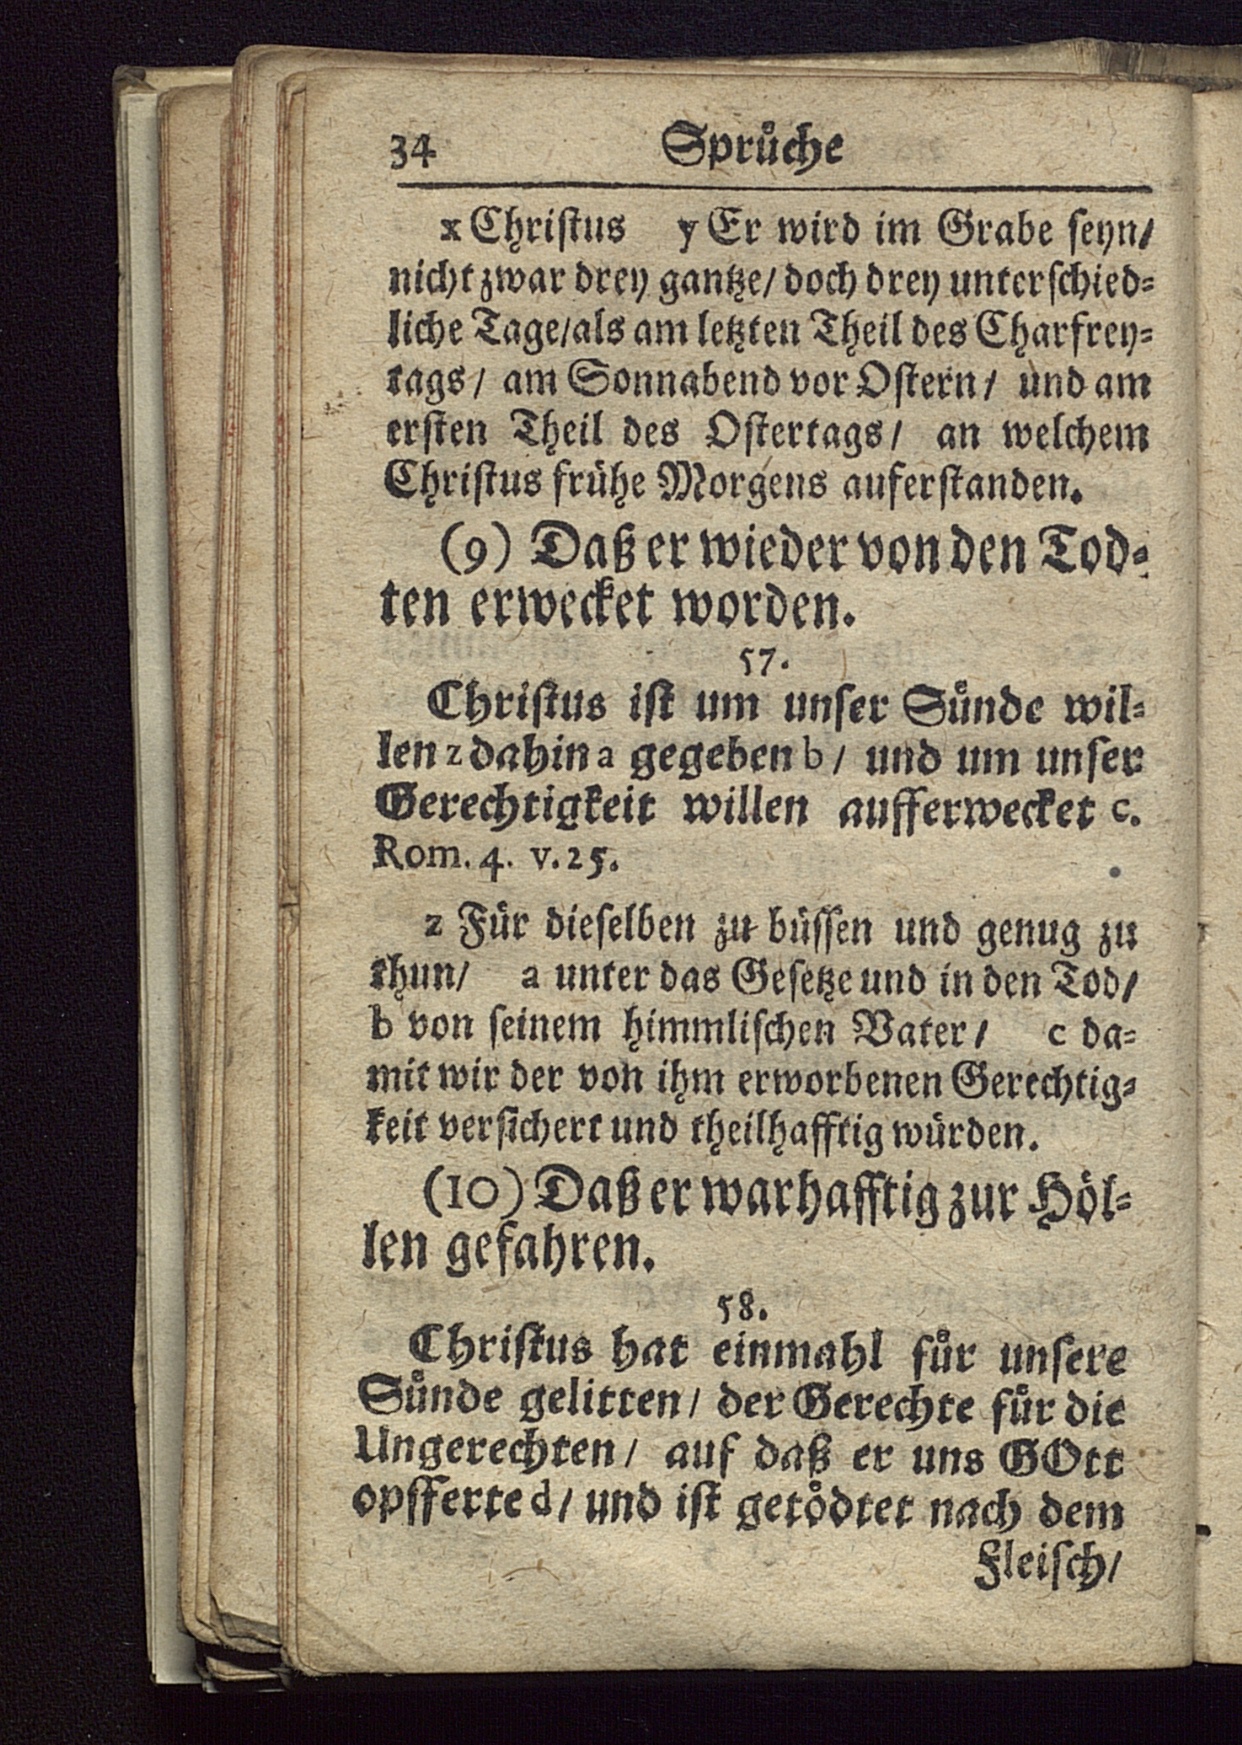 34 Spruͤche
x Chriſtus y Er wird im Grabe ſeyn/
nicht zwar drey gantze/ doch drey unterſchied-
liche Tage/ als am letzten Theil des Charfrey-
tags/ am Sonnabend vor Oſtern/ und am
erſten Theil des Oſtertags/ an welchem
Chriſtus frühe Morgens auferſtanden.
(9) Daß er wieder von den Tod-
ten erwecket worden.
57.
Chriſtus iſt um unſer Suͤnde wil-
len z dahin a gegeben b/ und um unſer
Gerechtigkeit willen aufferwecket c.
Rom. 4. v. 25.
z Für dieſelben zu büſſen und genug zu
thun/ a unter das Geſetze und in den Tod/
b von ſeinem himmliſchen Vater/ c da-
mit wir der von ihm erworbenen Gerechtig-
keit verſichert und theilhafftig würden.
(10) Daß er warhafftig zur Höl-
len gefahren.
58.
Chriſtus hat einmahl fuͤr unſere
Suͤnde gelitten/ der Gerechte fuͤr die
Ungerechten/ auf daß er uns GOtt
opfferte d/ und iſt getoͤdtet nach dem
Fleiſch/